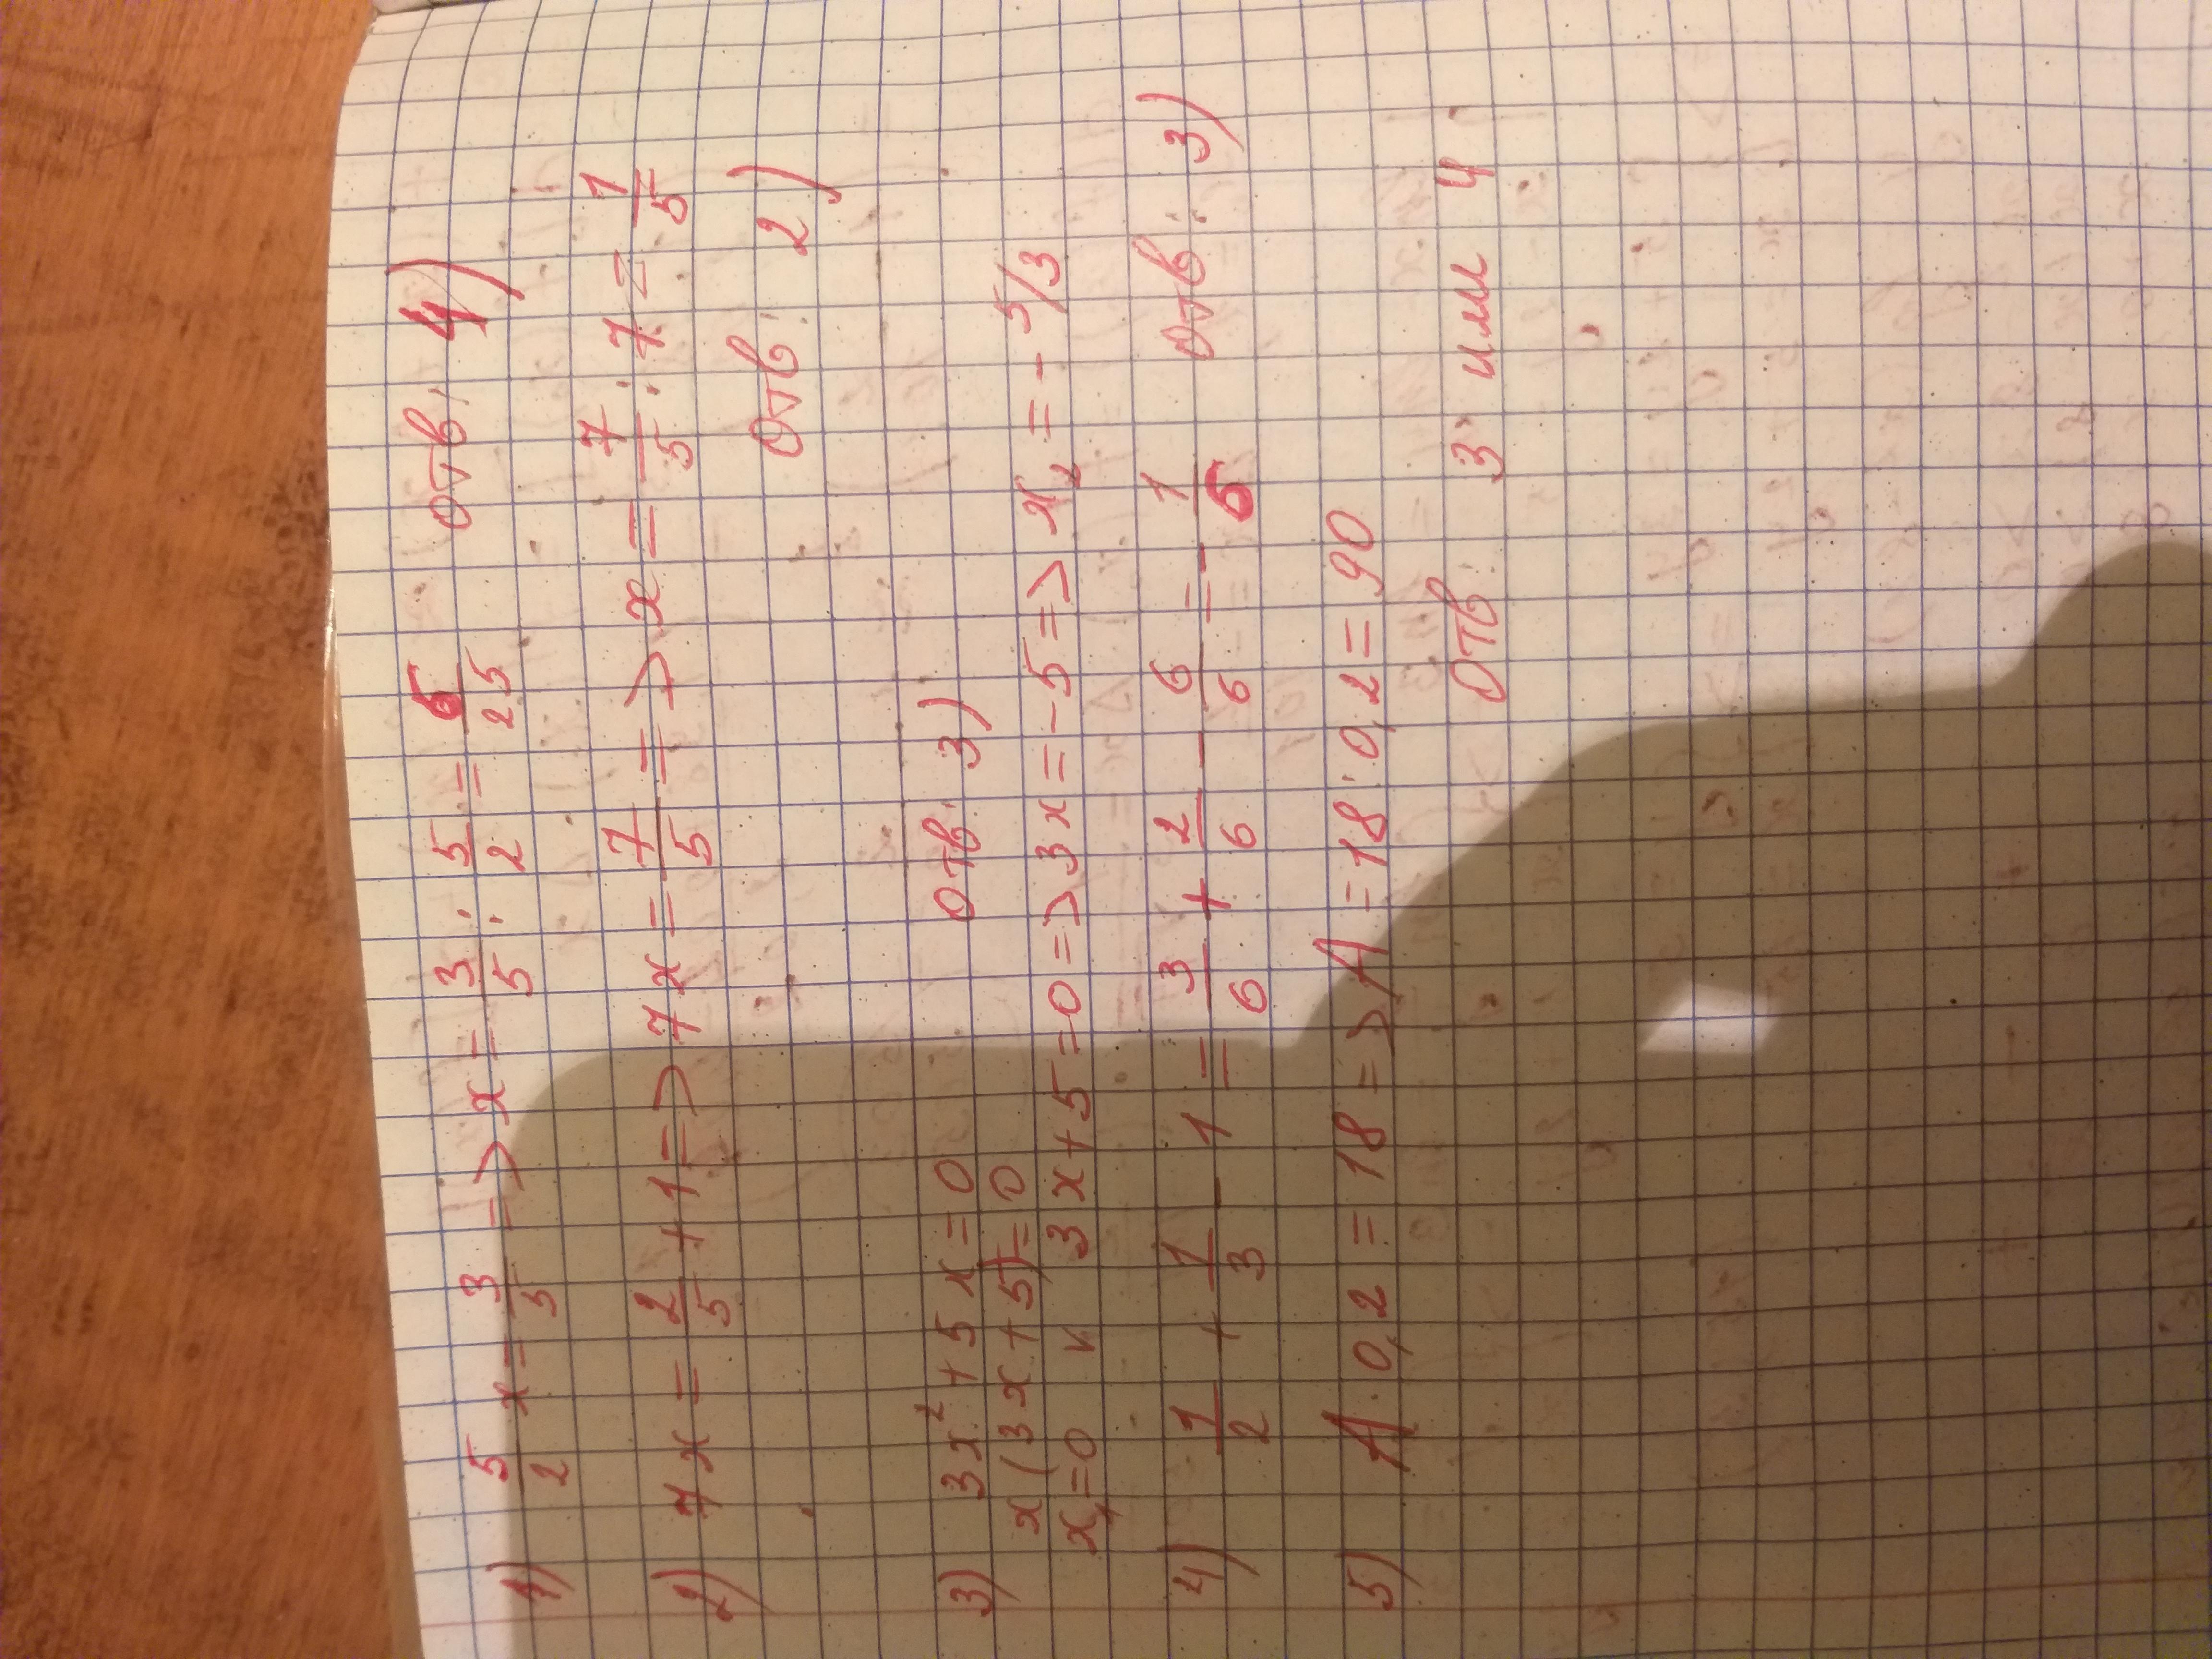 1) 5/2 x = 3/5 => x = 3/5 : 5/2 = 6/25 отв: 4)
2) 7x = 2/5 + 1 => 7x = 7/5 => x = 7/5 : 7 = 1/5
Отв: 2)
3) 3x² + 5x = 0 Отв: 3)
x(3x + 5) = 0
x₁ = 0 и 3x + 5 = 0 => 3x = -5 => x₂ = - 5/3
4) 1/2 + 1/3 - 1 = 3/6 + 2/6 - 6/6 = - 1/6 Отв: 3)
5) A · 0,2 = 18 => A = 18 : 0,2 = 90
Отв: 3 или 4